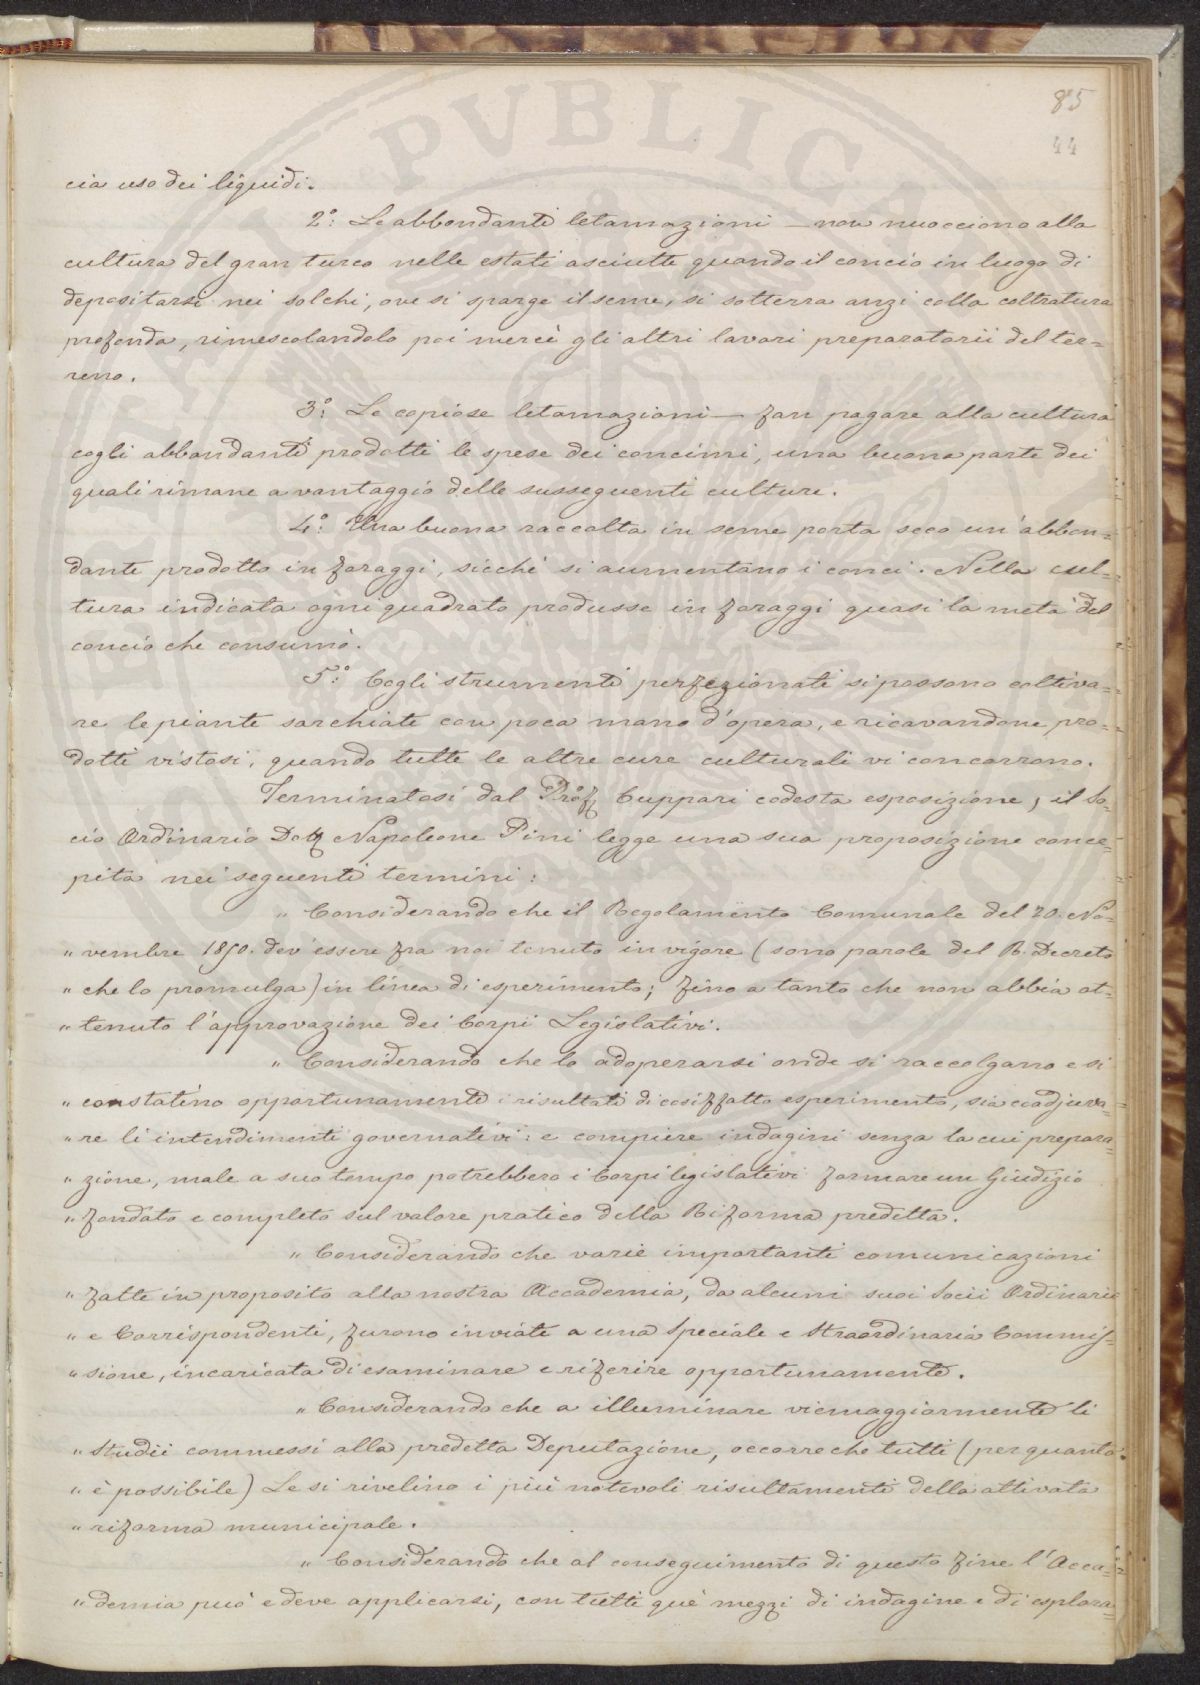 85
44
cia uso dei liquidi.
2°: Le abbondanti letamazioni — non nuocciono alla
cultura del gran turco nelle estati asciutte quando il concio in luogo di
depositarsi nei solchi, ove si sparge il seme, si sotterra anzi colla coltratura
profonda, rimescolandolo poi mercè gli altri lavori preparatorii del ter=
reno.
3°: Le copiose letamazioni — fan pagare alla cultura
cogli abbondanti prodotti le spese dei concimi, una buona parte dei
quali rimane a vantaggio delle susseguenti culture.
4°: Una buona raccolta in seme porta seco un'abbon=
dante prodotto in foraggi, sicchè si aumentano i conci. Nella cul=
tura indicata ogni quadrato produsse in foraggi quasi la metà del
concio che consumò.
5°: Cogli strumenti perfezionati si possono coltiva=
re le piante sarchiate con poca mano d'opera, e ricavandone pro=
dotti vistosi, quando tutte le altre cure culturali vi concorrono.
Terminatasi dal Prof. Cuppari codesta esposizione, il So=
cio Ordinario Dott. Napoleone Pini legge una sua proposizione conce=
pita nei seguenti termini:
" Considerando che il Regolamento Comunale del 20. No=
" vembre 1850. dev'essere fra noi tenuto in vigore (sono parole del R. Decreto
" che lo promulga) in linea di esperimento; fino a tanto che non abbia ot=
" tenuto l'approvazione dei Corpi Legislativi.
" Considerando che lo adoperarsi onde si raccolgano e si
" constatino opportunamente i risultati di cosiffatto esperimento, sia coadjuva=
" re li intendimenti governativi: e compiere indagini senza la cui prepara=
" zione, male a suo tempo potrebbero i Corpi legislativi formare un Giudizio
" fondato e completo sul valore pratico della Riforma predetta.
" Considerando che varie importanti comunicazioni
" fatte in proposito alla nostra Accademia, da alcuni suoi Socii Ordinarii
" e Corrispondenti, furono inviate a una Speciale e Straordinaria Commis=
" sione, incaricata di esaminare e riferire opportunamente.
" Considerando che a illuminare viemaggiormente li
" Studii commessi alla predetta Deputazione, occorre che tutti (per quanto
" è possibile) Le si rivelino i più notevoli risultamenti della attivata
" riforma municipale.
" Considerando che al conseguimento di questo fine l'Acca=
" demia può e deve applicarsi, con tutti què mezzi di indagine e di esplora=
PVBLICA